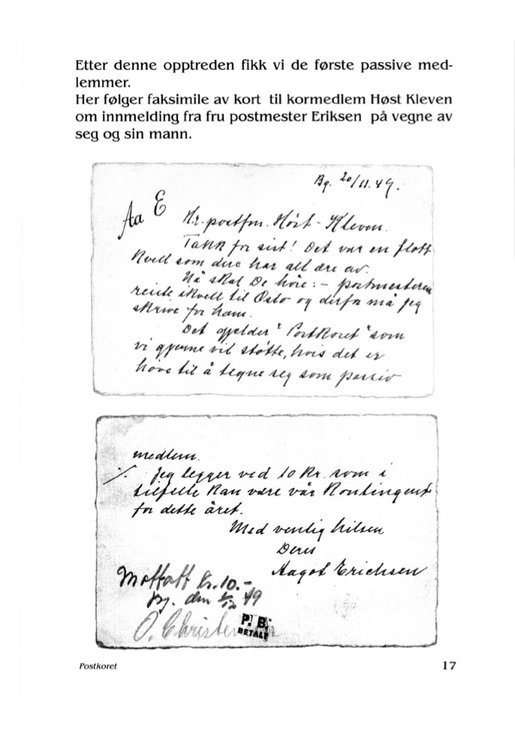 Etter denne opptreden fikk vi de første passive med-
lemmer.
Her følger faksimile av kort til kormedlem Høst Kleven
om innmelding fra fru postmester Eriksen på vegne av
seg og sin mann.
Bg. 20/11.49.
Aa E
Hr. postfm. Höst-Kleven.
Takk for sist! Det var en flott
kvell som dere har all ære av.
Nå skal De höre: - postmesteren
reiste ikvell til Oslo og derfor må jeg
skrive for ham.
Det gjelder "Postkoret" som
vi gjerne vil støtte, hvis det er
høve til å tegne seg som passiv
medlem.
./. Jeg legger ved 10 kr. som i
tilfelle kan være vår kontingent
for dette året.
Med venlig hilsen
Deres
Aagot Erichsen
Mottatt kr. 10.-
den 2/12 49
O.
P. B.
BETALT
Postkoret
17